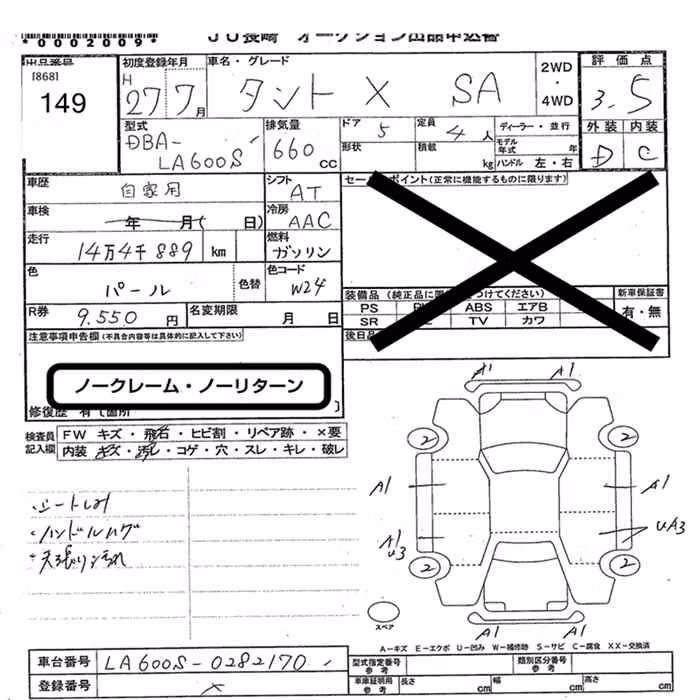 *0002009*
JU長崎 オークション出品申込書
出品番号
[868]
149
初度登録年月
H
27 7月
車名・グレード
タント X SA
2WD
・
4WD
評価点
3.5
外装 内装
D C
型式
DBA-
LA600S
排気量
660 CC
ドア
5
定員
4人
ディーラー・並行
形状
積載
kg
モデル年式 年
ハンドル 左・右
車歴
自家用
シフト
AT
セールスポイント(正常に機能するものに限ります)
車検
年 月( 日)
冷房
AAC
走行
14万4千889 km
燃料
ガソリン
色
パール
色替
色コード
W24
装備品
PS
ABS エアB
SR
TV カワ
新車保証書
有・無
R券
9.550円
名変期限
月 日
後日
注意事項申告欄(不具合内容等は具体的に記入して下さい)
ノークレーム・ノーリターン
修復歴 有〔箇所 〕
検査員
記入欄
FW キズ・飛石・ヒビ割・リペア跡・×要
内装 キズ・汚レ・コゲ・穴・スレ・キレ・破レ
・シートしみ
・ハンドルハゲ
・天張り汚れ
A1 A1
2 2
A1 A1
A1
U3
UA3
2 2
A1 A1
スペア
A-キズ E-エクボ U-凹み W-補修跡 S-サビ C-腐食 XX-交換済
車台番号
LA600S-0282170
登録番号
×
型式指定番号
参考
類別区分番号
参考
車庫証明用
参考
長さ cm
幅 cm
高さ cm